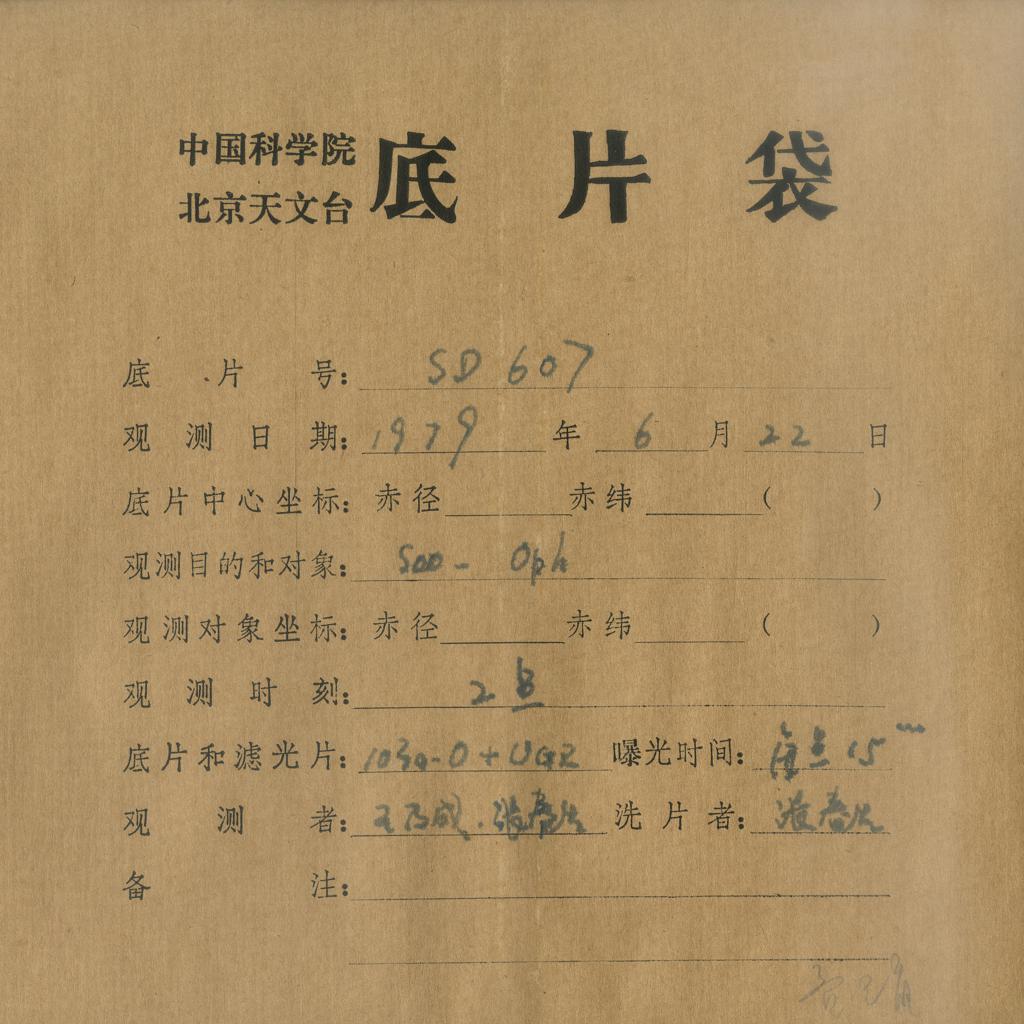 中国科学院
北京天文台
底片袋
底片号: SD 607
观测日期: 1979 年 6 月 22 日
底片中心坐标: 赤径 赤纬 ( )
观测目的和对象: Soo - Oph
观测对象坐标: 赤径 赤纬 ( )
观测时刻: 2
底片和滤光片: 103a-O + UG2 曝光时间: 15
观测者: 洗片者:
备注: